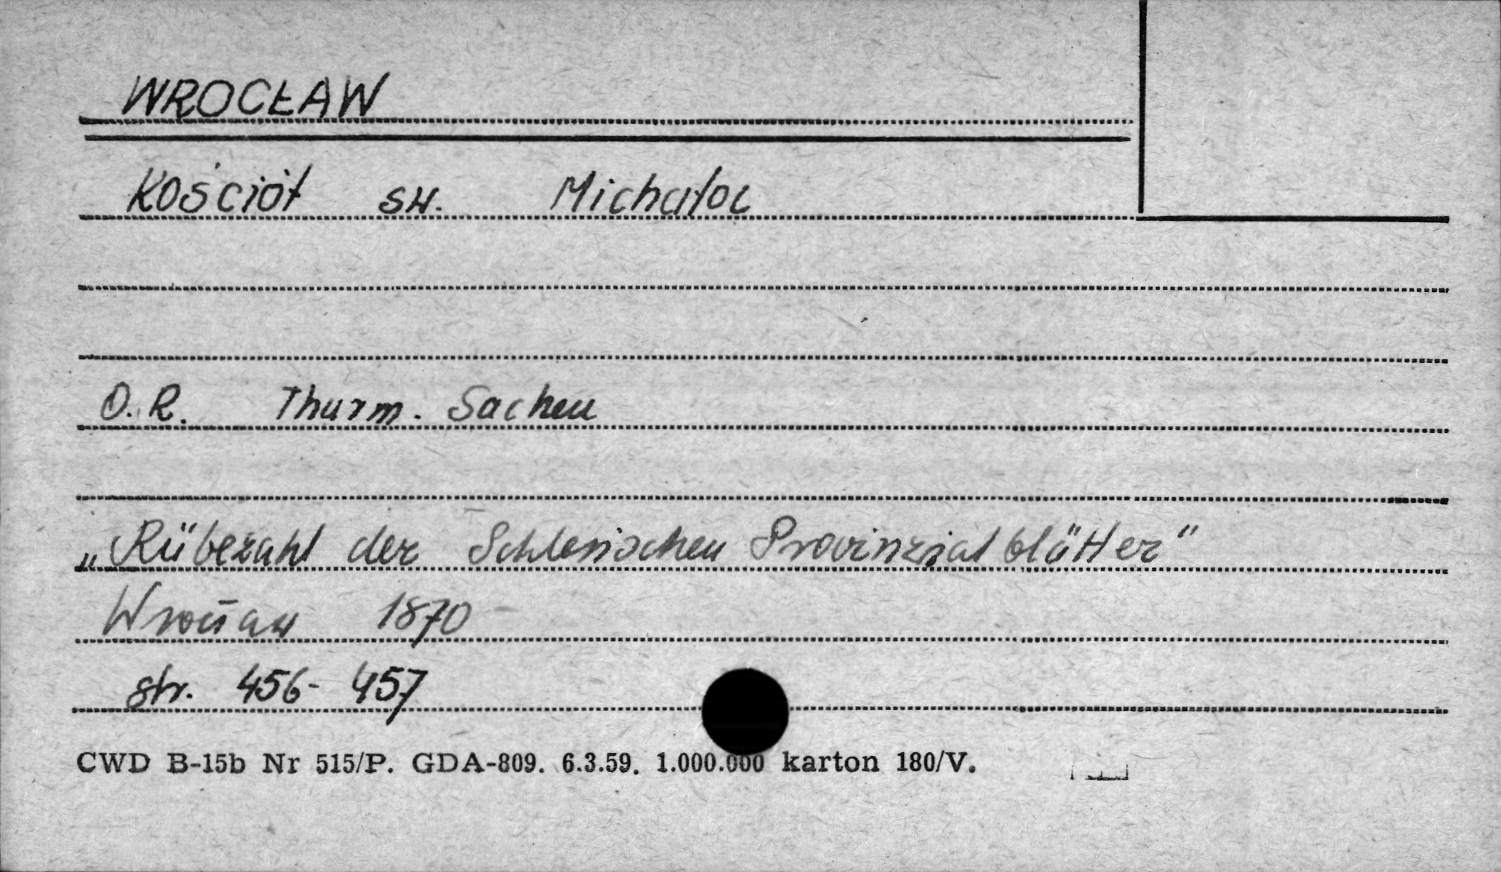 WROCŁAW
Kościół św. Michała
O.R. Thurm. Sachen
„Rübezahl der Schlesischen Provinzialblätter"
Wrocław 1870
str. 456-457
CWD B-15b Nr 515/P. GDA-809. 6.3.59. 1.000.000 karton 180/V.